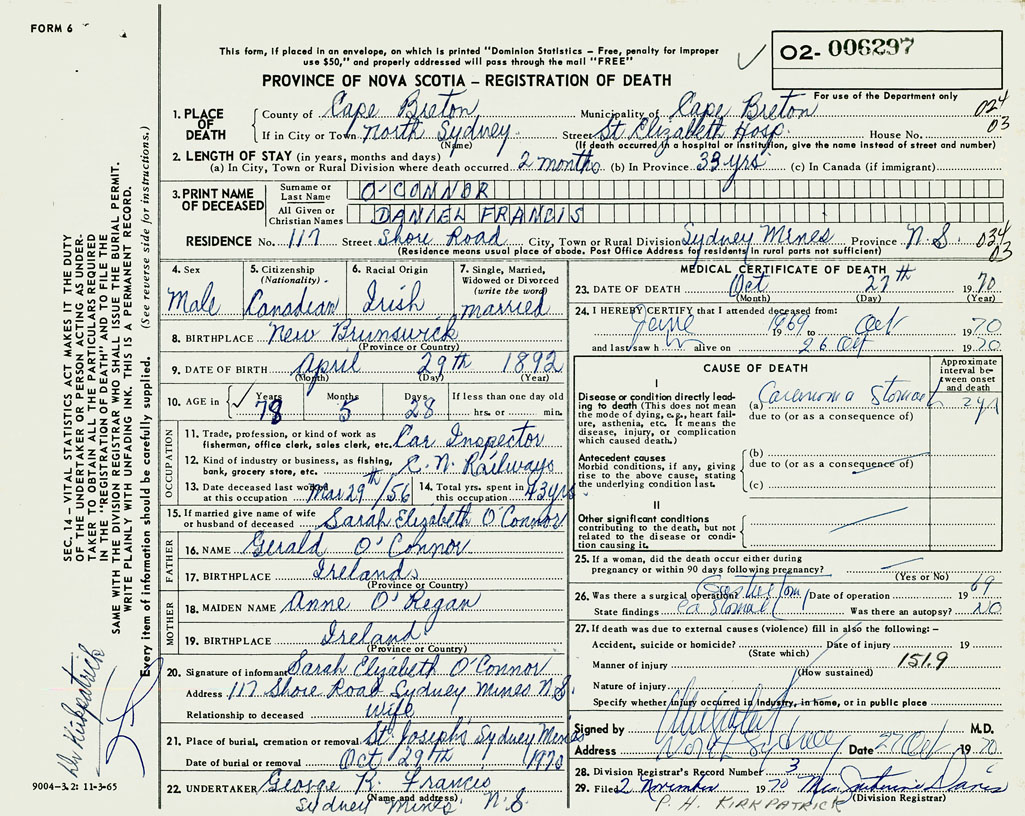 FORM 6
This form, if placed in an envelope, on which is printed "Dominion Statistics – Free, penalty for improper
use $50," and properly addressed will pass through the mail "FREE"
02- 006297
PROVINCE OF NOVA SCOTIA – REGISTRATION OF DEATH
For use of the Department only
1. PLACE OF DEATH
County of Cape Breton Municipality of Cape Breton 024
If in City or Town North Sydney Street St Elizabeth Hosp. House No. 03
(Name) (If death occurred in a hospital or institution, give the name instead of street and number)
2. LENGTH OF STAY (in years, months and days)
(a) In City, Town or Rural Division where death occurred 2 months (b) In Province 33 yrs (c) In Canada (if immigrant)
3. PRINT NAME OF DECEASED
Surname or Last Name O'CONNOR
All Given or Christian Names DANIEL FRANCIS
RESIDENCE No. 117 Street Shore Road City, Town or Rural Division Sydney Mines Province N S 034
03
(Residence means usual place of abode. Post Office Address for residents in rural parts not sufficient)
4. Sex Male
5. Citizenship (Nationality) Canadian
6. Racial Origin Irish
7. Single, Married, Widowed or Divorced (write the word) married
8. BIRTHPLACE New Brunswick
(Province or Country)
9. DATE OF BIRTH April 29th 1892
(Month) (Day) (Year)
10. AGE in Years 78 Months 5 Days 28 If less than one day old
hrs. or min.
OCCUPATION
11. Trade, profession, or kind of work as
fisherman, office clerk, sales clerk, etc. Car Inspector
12. Kind of industry or business, as fishing,
bank, grocery store, etc. C. N. Railways
13. Date deceased last worked
at this occupation Mar 29th/56
14. Total yrs. spent in
this occupation 43 yrs
15. If married give name of wife
or husband of deceased Sarah Elizabeth O'Connor
FATHER
16. NAME Gerald O'Connor
17. BIRTHPLACE Ireland
(Province or Country)
MOTHER
18. MAIDEN NAME Anne O'Regan
19. BIRTHPLACE Ireland
(Province or Country)
20. Signature of informant Sarah Elizabeth O'Connor
Address 117 Shore Road Sydney Mines N.S.
Relationship to deceased wife
21. Place of burial, cremation or removal St. Joseph's Sydney Mines
Date of burial or removal Oct 29th 1970
22. UNDERTAKER George R. Francis
(Name and address)
Sydney Mines N. S
MEDICAL CERTIFICATE OF DEATH
23. DATE OF DEATH Oct 27th 1970
(Month) (Day) (Year)
24. I HEREBY CERTIFY that I attended deceased from:
1969 to Oct 1970
and last saw h alive on 26 Oct 1970
CAUSE OF DEATH
Approximate interval between onset and death
I
Disease or condition directly leading
to death (This does not mean
the mode of dying, e.g., heart failure,
asthenia, etc. It means the
disease, injury, or complication
which caused death.)
(a) Carcinoma Stomach 2 yr
due to (or as a consequence of)
Antecedent causes
Morbid conditions, if any, giving
rise to the above cause, stating
the underlying condition last.
(b)
due to (or as a consequence of)
(c)
II
Other significant conditions
contributing to the death, but not
related to the disease or condition
causing it.
25. If a woman, did the death occur either during
pregnancy or within 90 days following pregnancy?
(Yes or No)
26. Was there a surgical operation? Date of operation 1969
State findings Ca Stomach Was there an autopsy? NO
27. If death was due to external causes (violence) fill in also the following: –
Accident, suicide or homicide? Date of injury 19
(State which)
Manner of injury 151.9
(How sustained)
Nature of injury
Specify whether injury occurred in industry, in home, or in public place
Signed by M.D.
Address North Sydney Date 27 Oct 1970
28. Division Registrar's Record Number 3
29. Filed 2 November 1970
(Division Registrar)
P. H. KIRKPATRICK
SEC. 14 – VITAL STATISTICS ACT MAKES IT THE DUTY
OF THE UNDERTAKER OR PERSON ACTING AS UNDERTAKER
TO OBTAIN ALL THE PARTICULARS REQUIRED
IN THE "REGISTRATION OF DEATH" AND TO FILE THE
SAME WITH THE DIVISION REGISTRAR WHO SHALL ISSUE THE BURIAL PERMIT.
WRITE PLAINLY WITH UNFADING INK. THIS IS A PERMANENT RECORD.
Every item of information should be carefully supplied. (See reverse side for instructions.)
Dr Kirkpatrick
9004-3.2: 11-3-65